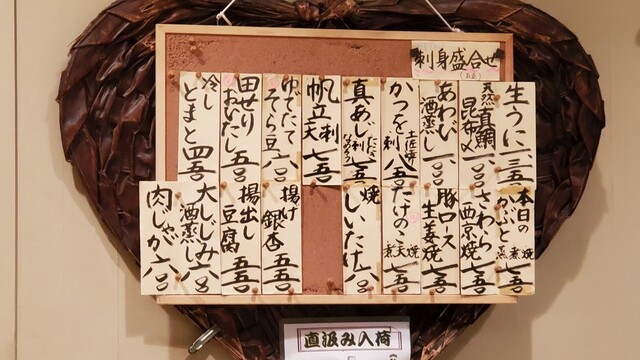 刺身盛合せ
生うに 一、三五
天然真鯛昆布〆 一、〇〇
あわび酒蒸し 一、〇〇
かつを 土佐焼 刺 八五
真あじ 刺 なめろう 七五
帆立 刺 天 七五
ゆでたてそら豆 六〇〇
田せりおひたし 五〇〇
冷しとまと 四五〇
本日のかぶと 焼 煮 七五〇
さわら西京焼 七五〇
豚ロース生姜焼 七五〇
たけのこ 焼 天 煮 七五〇
焼しいたけ 六〇〇
揚げ銀杏 五五〇
揚出し豆腐 五五〇
大しじみ酒蒸し 六八〇
肉じゃが 六〇〇
直汲み入荷